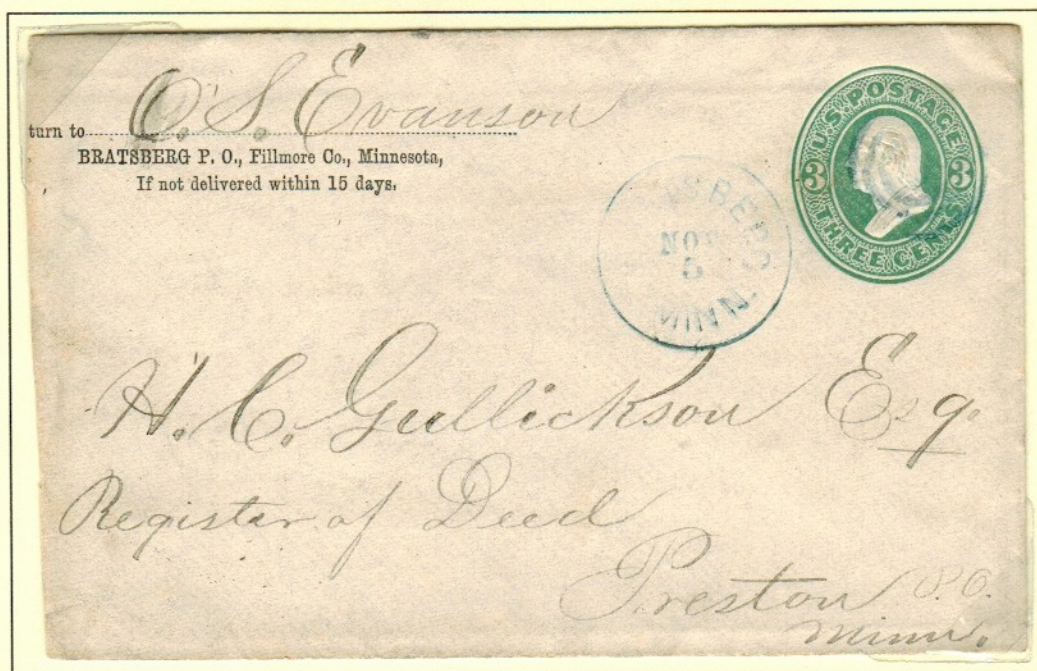 O. S. Evanson
turn to
BRATSBERG P. O., Fillmore Co., Minnesota,
If not delivered within 15 days.
U.S. POSTAGE
3 3
THREE CENTS
SBERG
NOV
5
MINN.
H. C. Gullickson Esq.
Register of Deed
Preston P.O.
Minn.